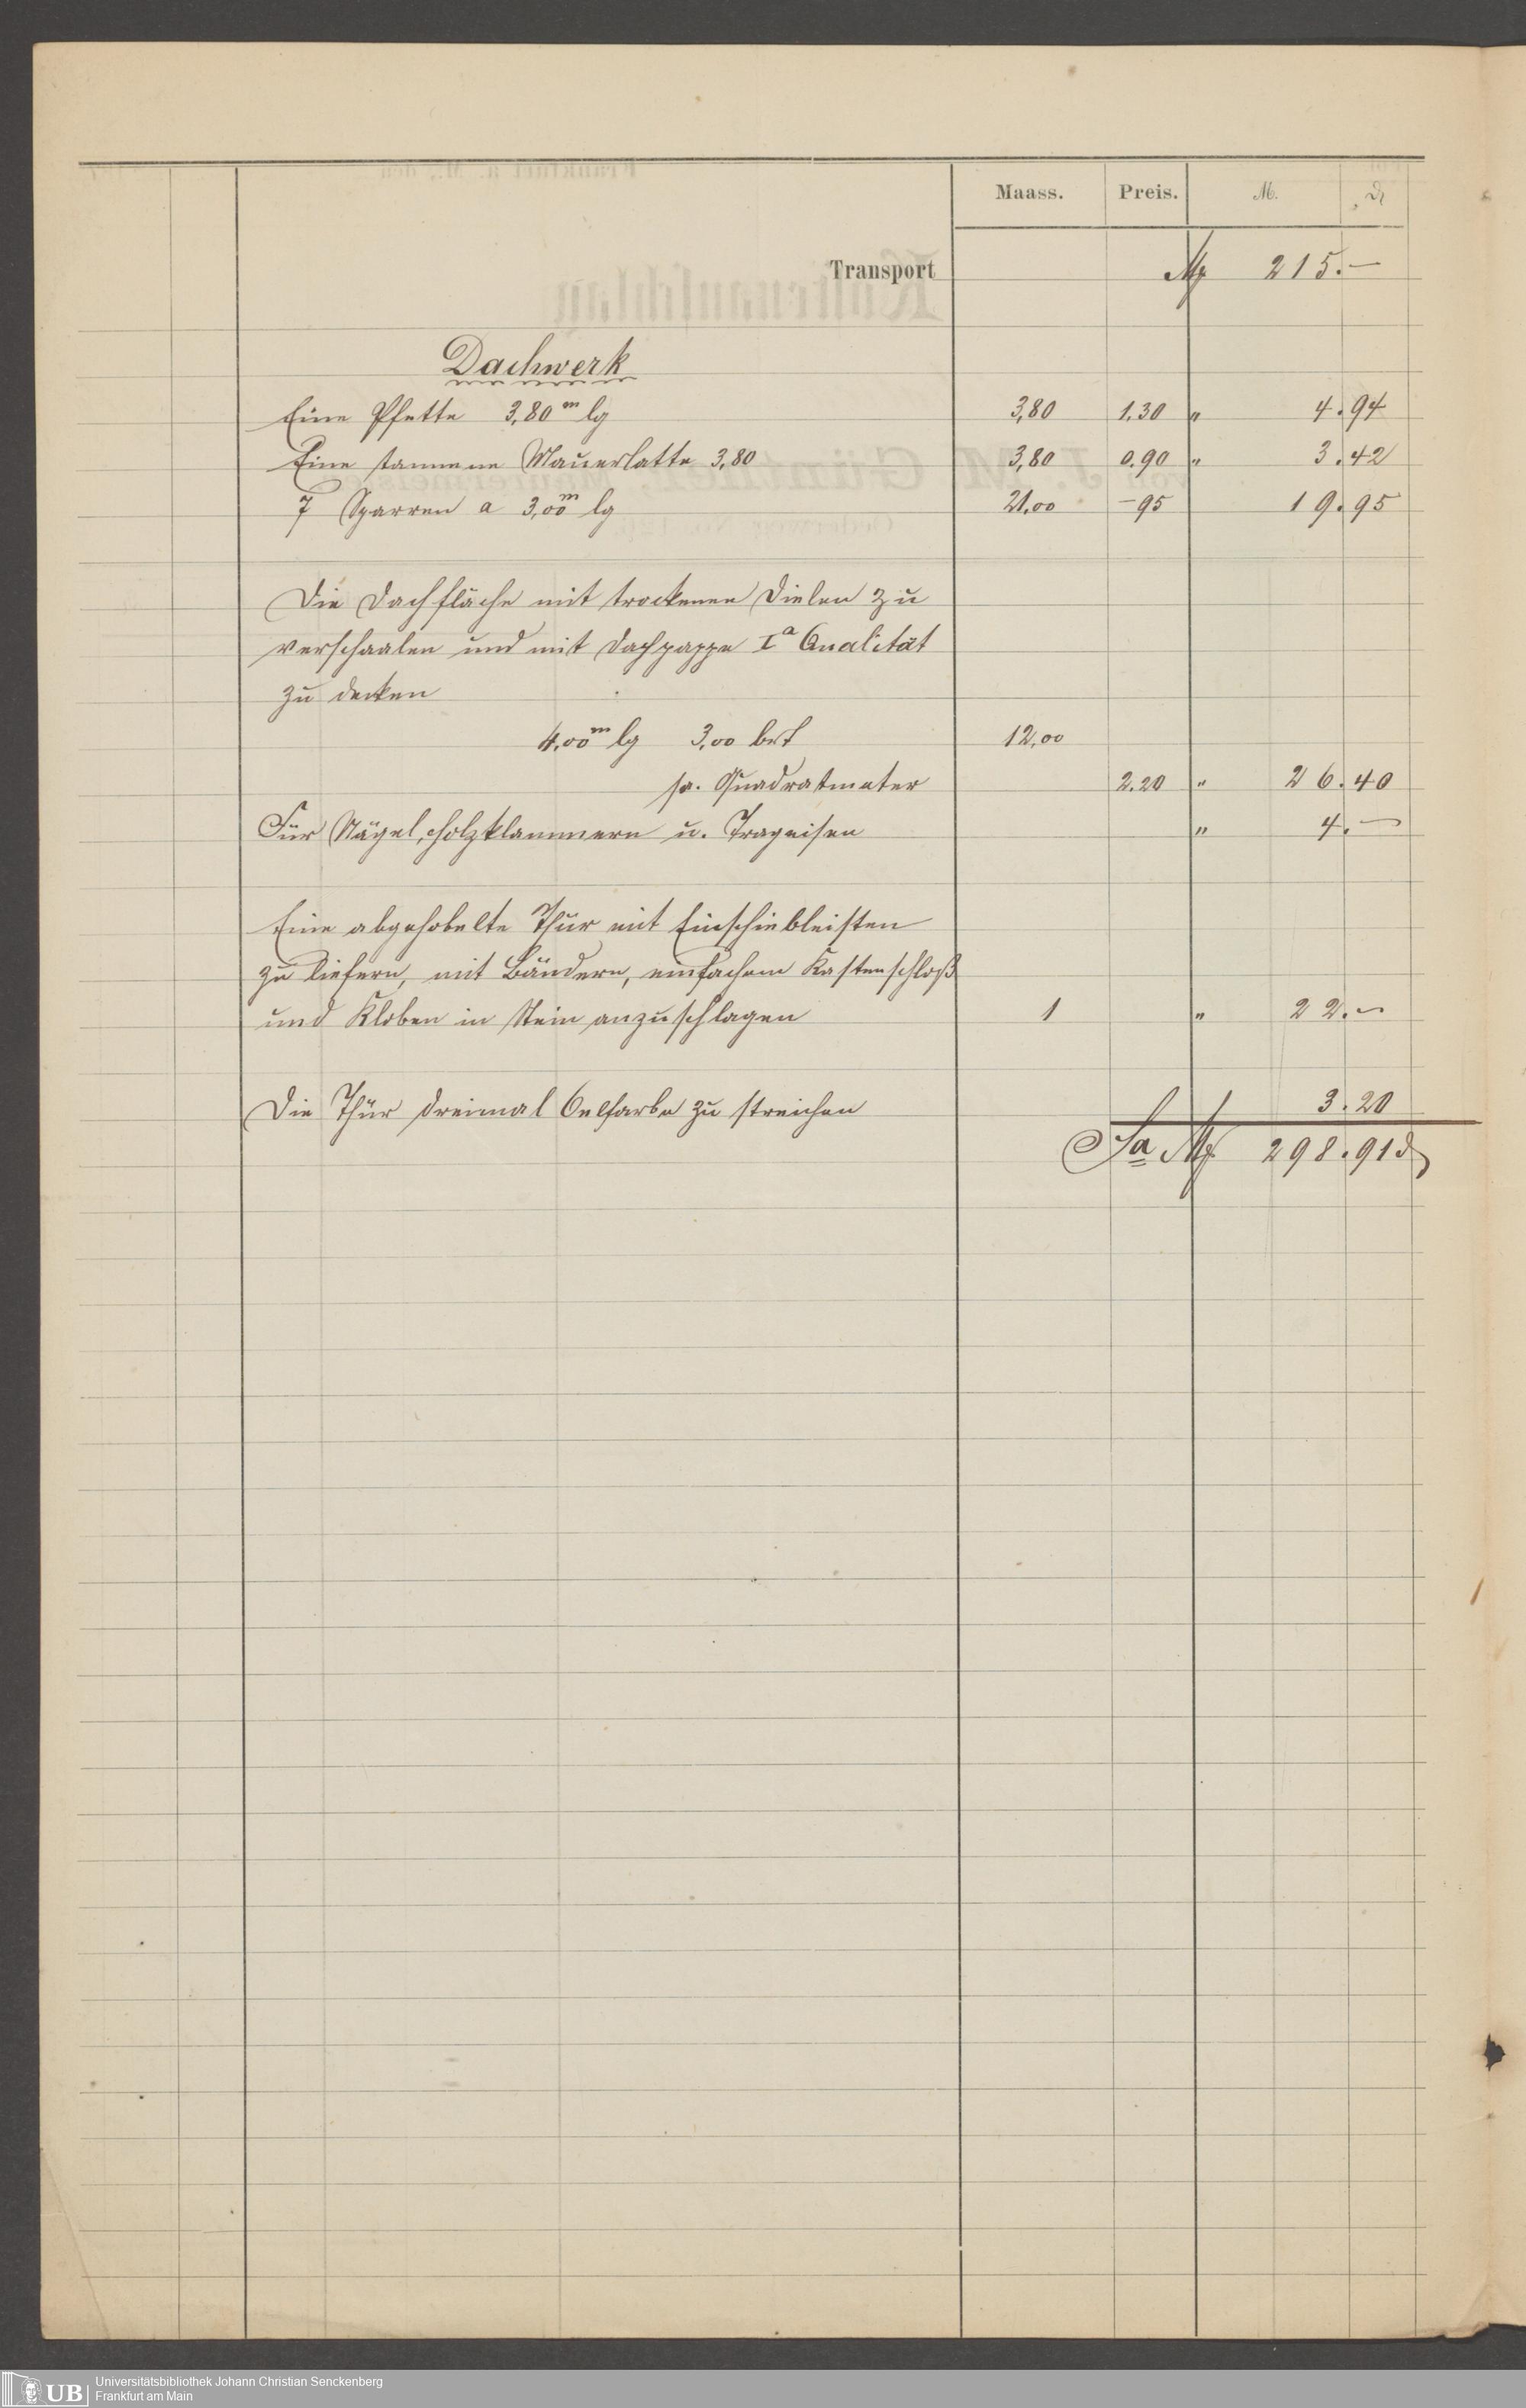 Maass. Preis. M. ₰
Transport M 215.—
Dachwerk
Eine Pfette 3,80 m lg 3,80 1.30 " 4.94
Eine tannene Mauerlatte 3,80 3,80 0.90 " 3.42
7 Sparren a 3,00 m lg 21,00 –95 19.95
Die Dachfläche mit trockenen Dielen zu
verschaalen und mit Dachpappe Ia Qualität
zu decken
4,00 m lg 3,00 brt 12,00
pr. Quadratmeter 2.20 " 26.40
Für Nägel, Holzklammern u. Trageisen " 4.—
Eine abgehobelte Thür mit Einschiebleisten
zu liefern, mit Bändern, einfachem Kastenschloß
und Kloben in Stein anzuschlagen 1 " 22.—
Die Thür dreimal Oelfarbe zu streichen 3.20
Sa M 298.91 ₰
UB Universitätsbibliothek Johann Christian Senckenberg
Frankfurt am Main